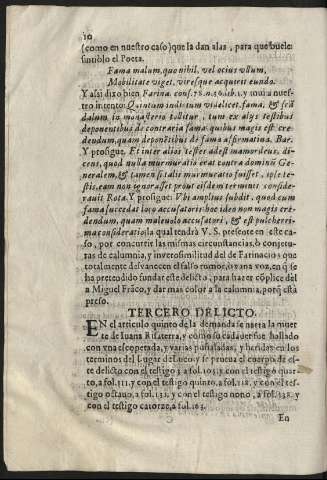 10
(como en nuestro caso) que la dan alas, para que buele:
sintiòlo el Poeta.
Fama malum, quo nihil, vel ocius vllum,
Mobilitate viget, viresque acquirit eundo.
Y assi dixo bien Farina. cons. 75. n. 56. lib. 1. y touia nues-
tro intento: Quintum indicium videlicet, fama, & scã
dalum in monasterio tollitur, tum ex alijs testibus
deponentibus de contraria fama quibus magis est cre
dendum, quam deponẽtibus de fama affirmatina. Bar.
Y prosigue. Et inter alios testes adest di-
cens, quod nulla murmuratio erat contra dominũ Ge-
neralem, & tamen si talis murmuratio fuisset, ipse te-
stis, eam non ignorasset prout eisdem terminis conside-
rauit Rota. Y prosigue: Vbi amplius subdit, quod cum
fama succedat loco accusatoris, hoc ideo non magis cre
dendum, quam maleuolo accusatori, & est pulcherri-
ma consideratio, la qual tendrà V. S. presente en este ca-
so, por concurrir las mismas circunstancias, ò conjetu-
ras de calumnia, y inverosimilitud del de Farinacio: que
totalmente desvanecen el falso rumor, ò vana voz, en q̃ se
ha pretendido fundar este delicto, para hacer còplice dèl
a Miguel Frãco, y dar mas color a la calumnia, porq̃ està
preso.
TERCERO DELICTO.
EN el articulo quinto de la demanda se narra la muer
te de Iuana Risaterra, y como su cadauer fue hallado
con vna escopetada, y varias puñaladas, y heridas en los
terminos del Lugar de Lueo y se prueua el cuerpo de es-
te delicto con el testigo 3. a fol. 105. y con el testigo quar
to, a fol. 111. y con el testigo quinto, a fol. 118. y con el tes-
tigo octauo, a fol. 132. y con el testigo nono, a fol. 138. y
con el testigo catorze, a fol. 163.
En